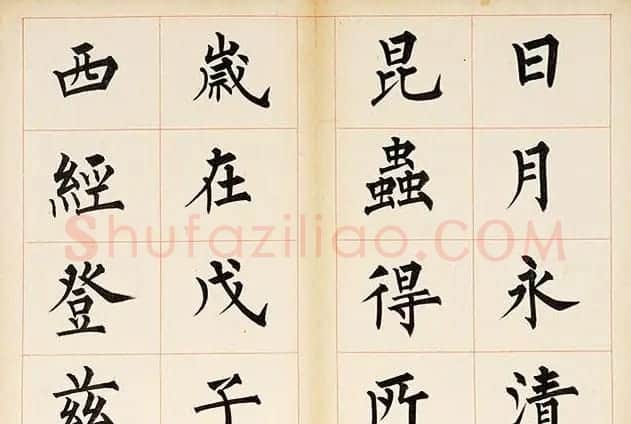 日月永清
昆蟲得所
歲在戊子
西經登茲
Shufaziliao.COM